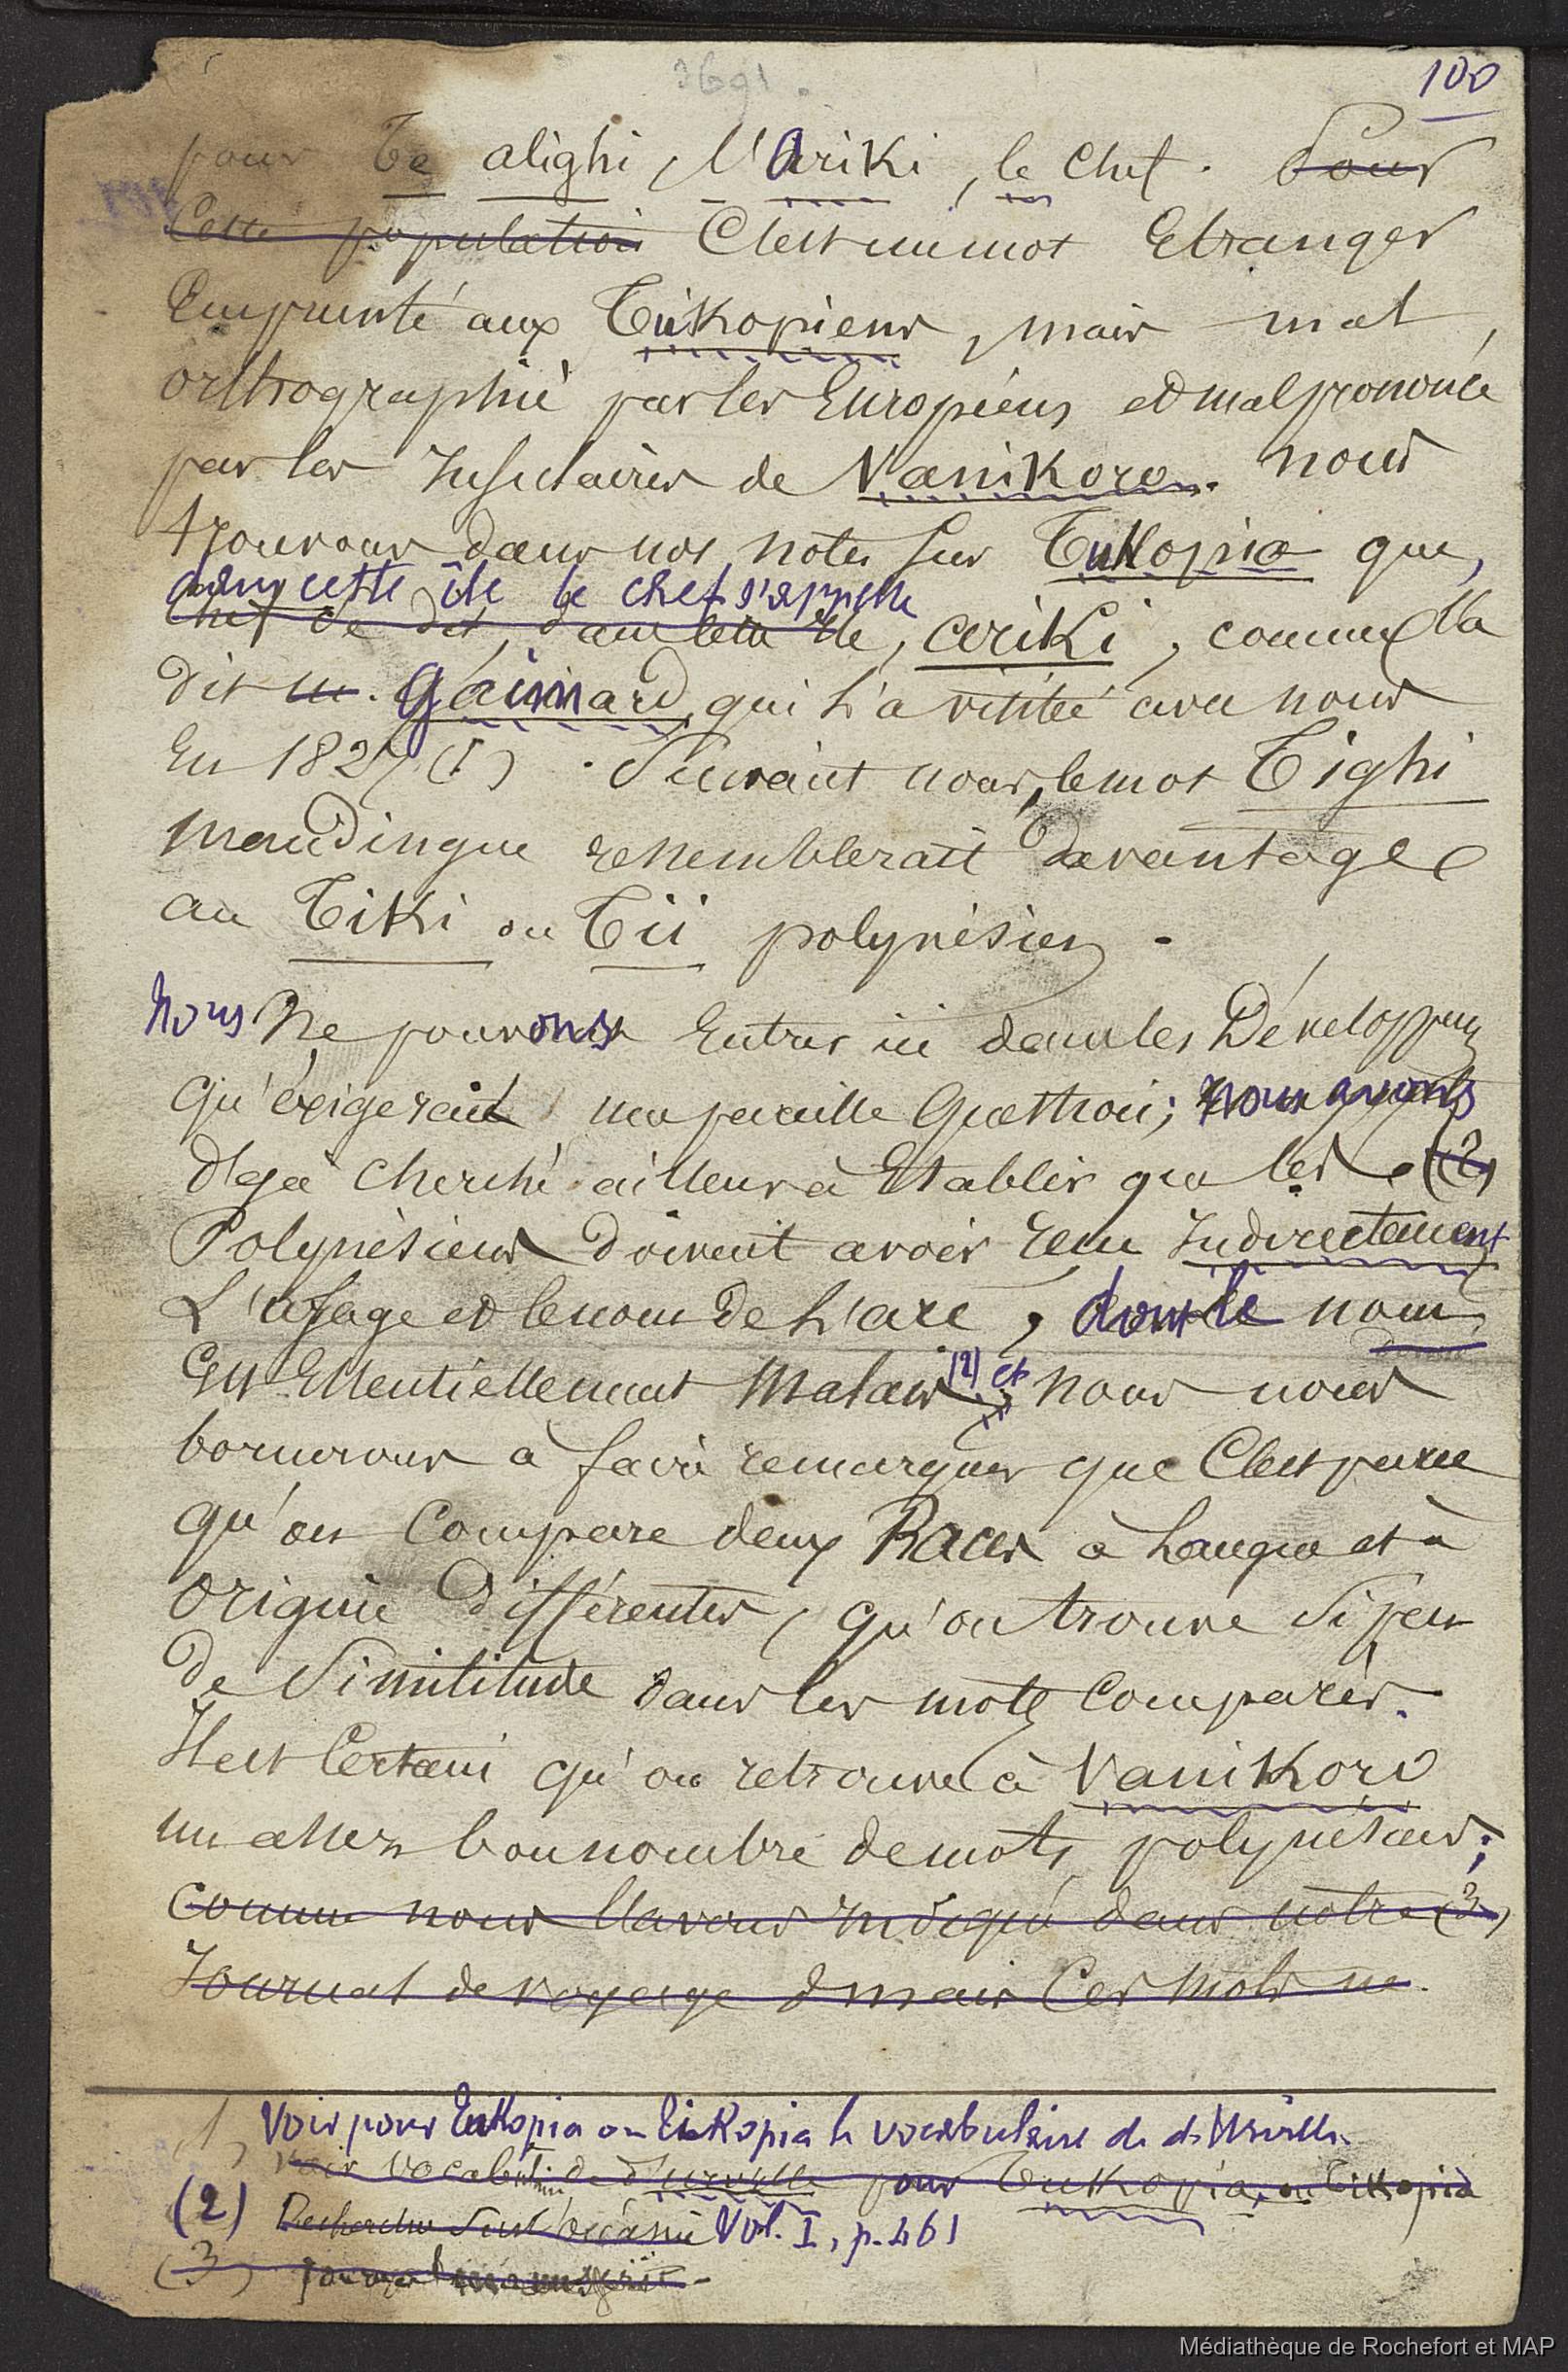 3691.
100
pour Te alighi, l'Ariki, le Chef. Pour
Cette population C'est un mot Etranger
Emprunté aux Tukopiens, mais mal
orthographié par les Européens et mal prononcé
par les Insulaires de Vanikoro. nous
trouvons dans nos notes sur Tukopia que,
dans cette île le chef s'appelle
Chef se dit, dans cette île, ariki, comme l'a
dit M. Gaimard, qui l'a visitée avec nous
En 1827 (1). Suivant nous, le mot Tighi
mandingue ressemblerait davantage
au Tiki ou Tii polynésien.
Nous Ne pouvons Entrer ici dans les Développem
qu'exigerait une pareille Question; nous avons
déjà cherché ailleurs à Etablir que les (2)
Polynésiens doivent avoir reçu Indirectement
L'usage et le nom de l'arc, dont le nom
Est Essentiellement Malais (2) et nous nous
bornerons à faire remarquer que C'est parce
qu'on Compare deux Races à Langue et à
origine différentes, qu'on trouve si peu
de Similitude dans les mots Comparés.
Il est Certain qu'on retrouve à Vanikoro
un assez bon nombre de mots polynésiens;
comme nous l'avons indiqué dans notre (3)
Journal de voyage mais Ces mots ne
1) Voir pour Tukopia ou Tikopia le vocabulaire de d'Urville
Voir vocabulaire de d'Urville pour Tukopia, ou Tikopia
(2) Recherches sur l'océanie Vol. I, p. 461
(3) Journal manuscrit.
Médiathèque de Rochefort et MAP